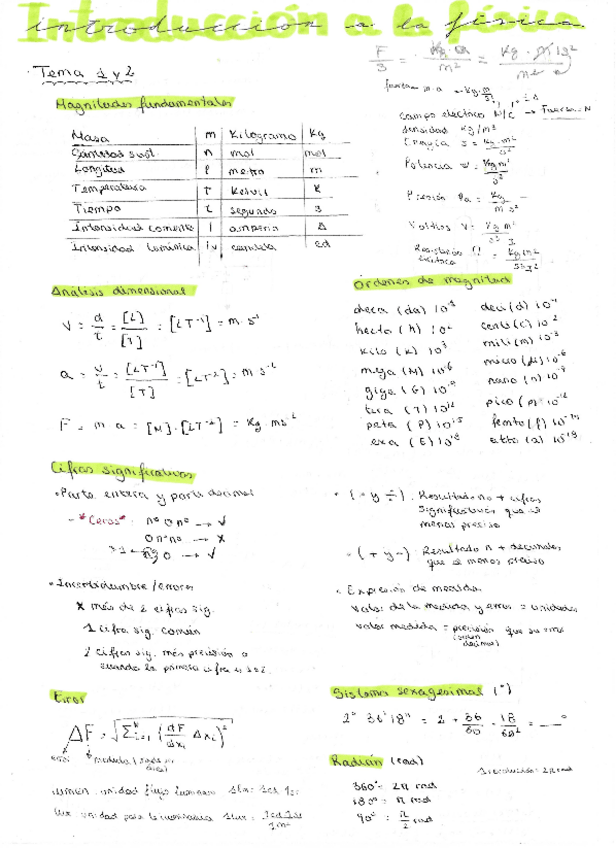 Introducción a la física
Tema 1 y 2
Magnitudes fundamentales
Masa m Kilogramo Kg
Cantidad sust. n mol mol
Longitud l metro m
Temperatura T Kelvin K
Tiempo t segundo s
Intensidad corriente I amperio A
Intensidad lumínica Iv candela cd
campo electrico N/C → Fuerza = N
densidad Kg/m³
Energia J = Kg·m²/s²
Potencia W = Kg m²/s³
Presión Pa = Kg/m s²
Voltios V = Kg m²/s³ I
Resistencia eléctrica Ω = Kg m²/s³ I²
Análisis dimensional
V = d/t = [L]/[T] = [LT⁻¹] = m·s⁻¹
a = v/t = [LT⁻¹]/[T] = [LT⁻²] = m s⁻²
F = m a = [M]·[LT⁻²] = Kg·ms⁻²
Ordenes de magnitud
deca (da) 10
deci (d) 10⁻¹
hecto (h) 10²
centi (c) 10
kilo (k) 10³
mili (m) 10⁻³
mega (M) 10⁶
micro (μ) 10⁻⁶
giga (G) 10⁹
nano (n) 10⁻⁹
tera (T) 10¹²
pico (p) 10⁻¹²
peta (P) 10¹⁵
femto (f) 10⁻¹⁵
exa (E) 10¹⁸
atto (a) 10⁻¹⁸
Cifras significativas
• Parte entera y parte decimal
- *Ceros*: nº 0 nº → ✓
0 nº nº → X
nº 0 → ✓
• Incertidumbre/errores
X más de 2 cifras sig.
1 cifra sig. común
2 cifras sig. más precisión o
cuando la primera cifra es 1 o 2.
• (· y ÷): Resultado nº + cifras
significativas que el
menos preciso
• (+ y -): Resultado n + decimales
que el menos preciso
• Expresión de medida
valor de la medida y error = unidades
valor medida = precisión que su error
Error
ΔF = √Σᴺᵢ₌₁ (dF/dxᵢ Δxᵢ)²
error
lumen unidad flujo luminoso 1lm = 1cd·1sr
lux unidad para la iluminancia 1lux = 1cd·1sr/1m²
Sistema sexagesimal (°)
2° 36' 18'' = 2 + 36/60 + 18/60² = ___°
Radián (rad)
1 revolución = 2π rad
360° = 2π rad
180° = π rad
90° = π/2 rad